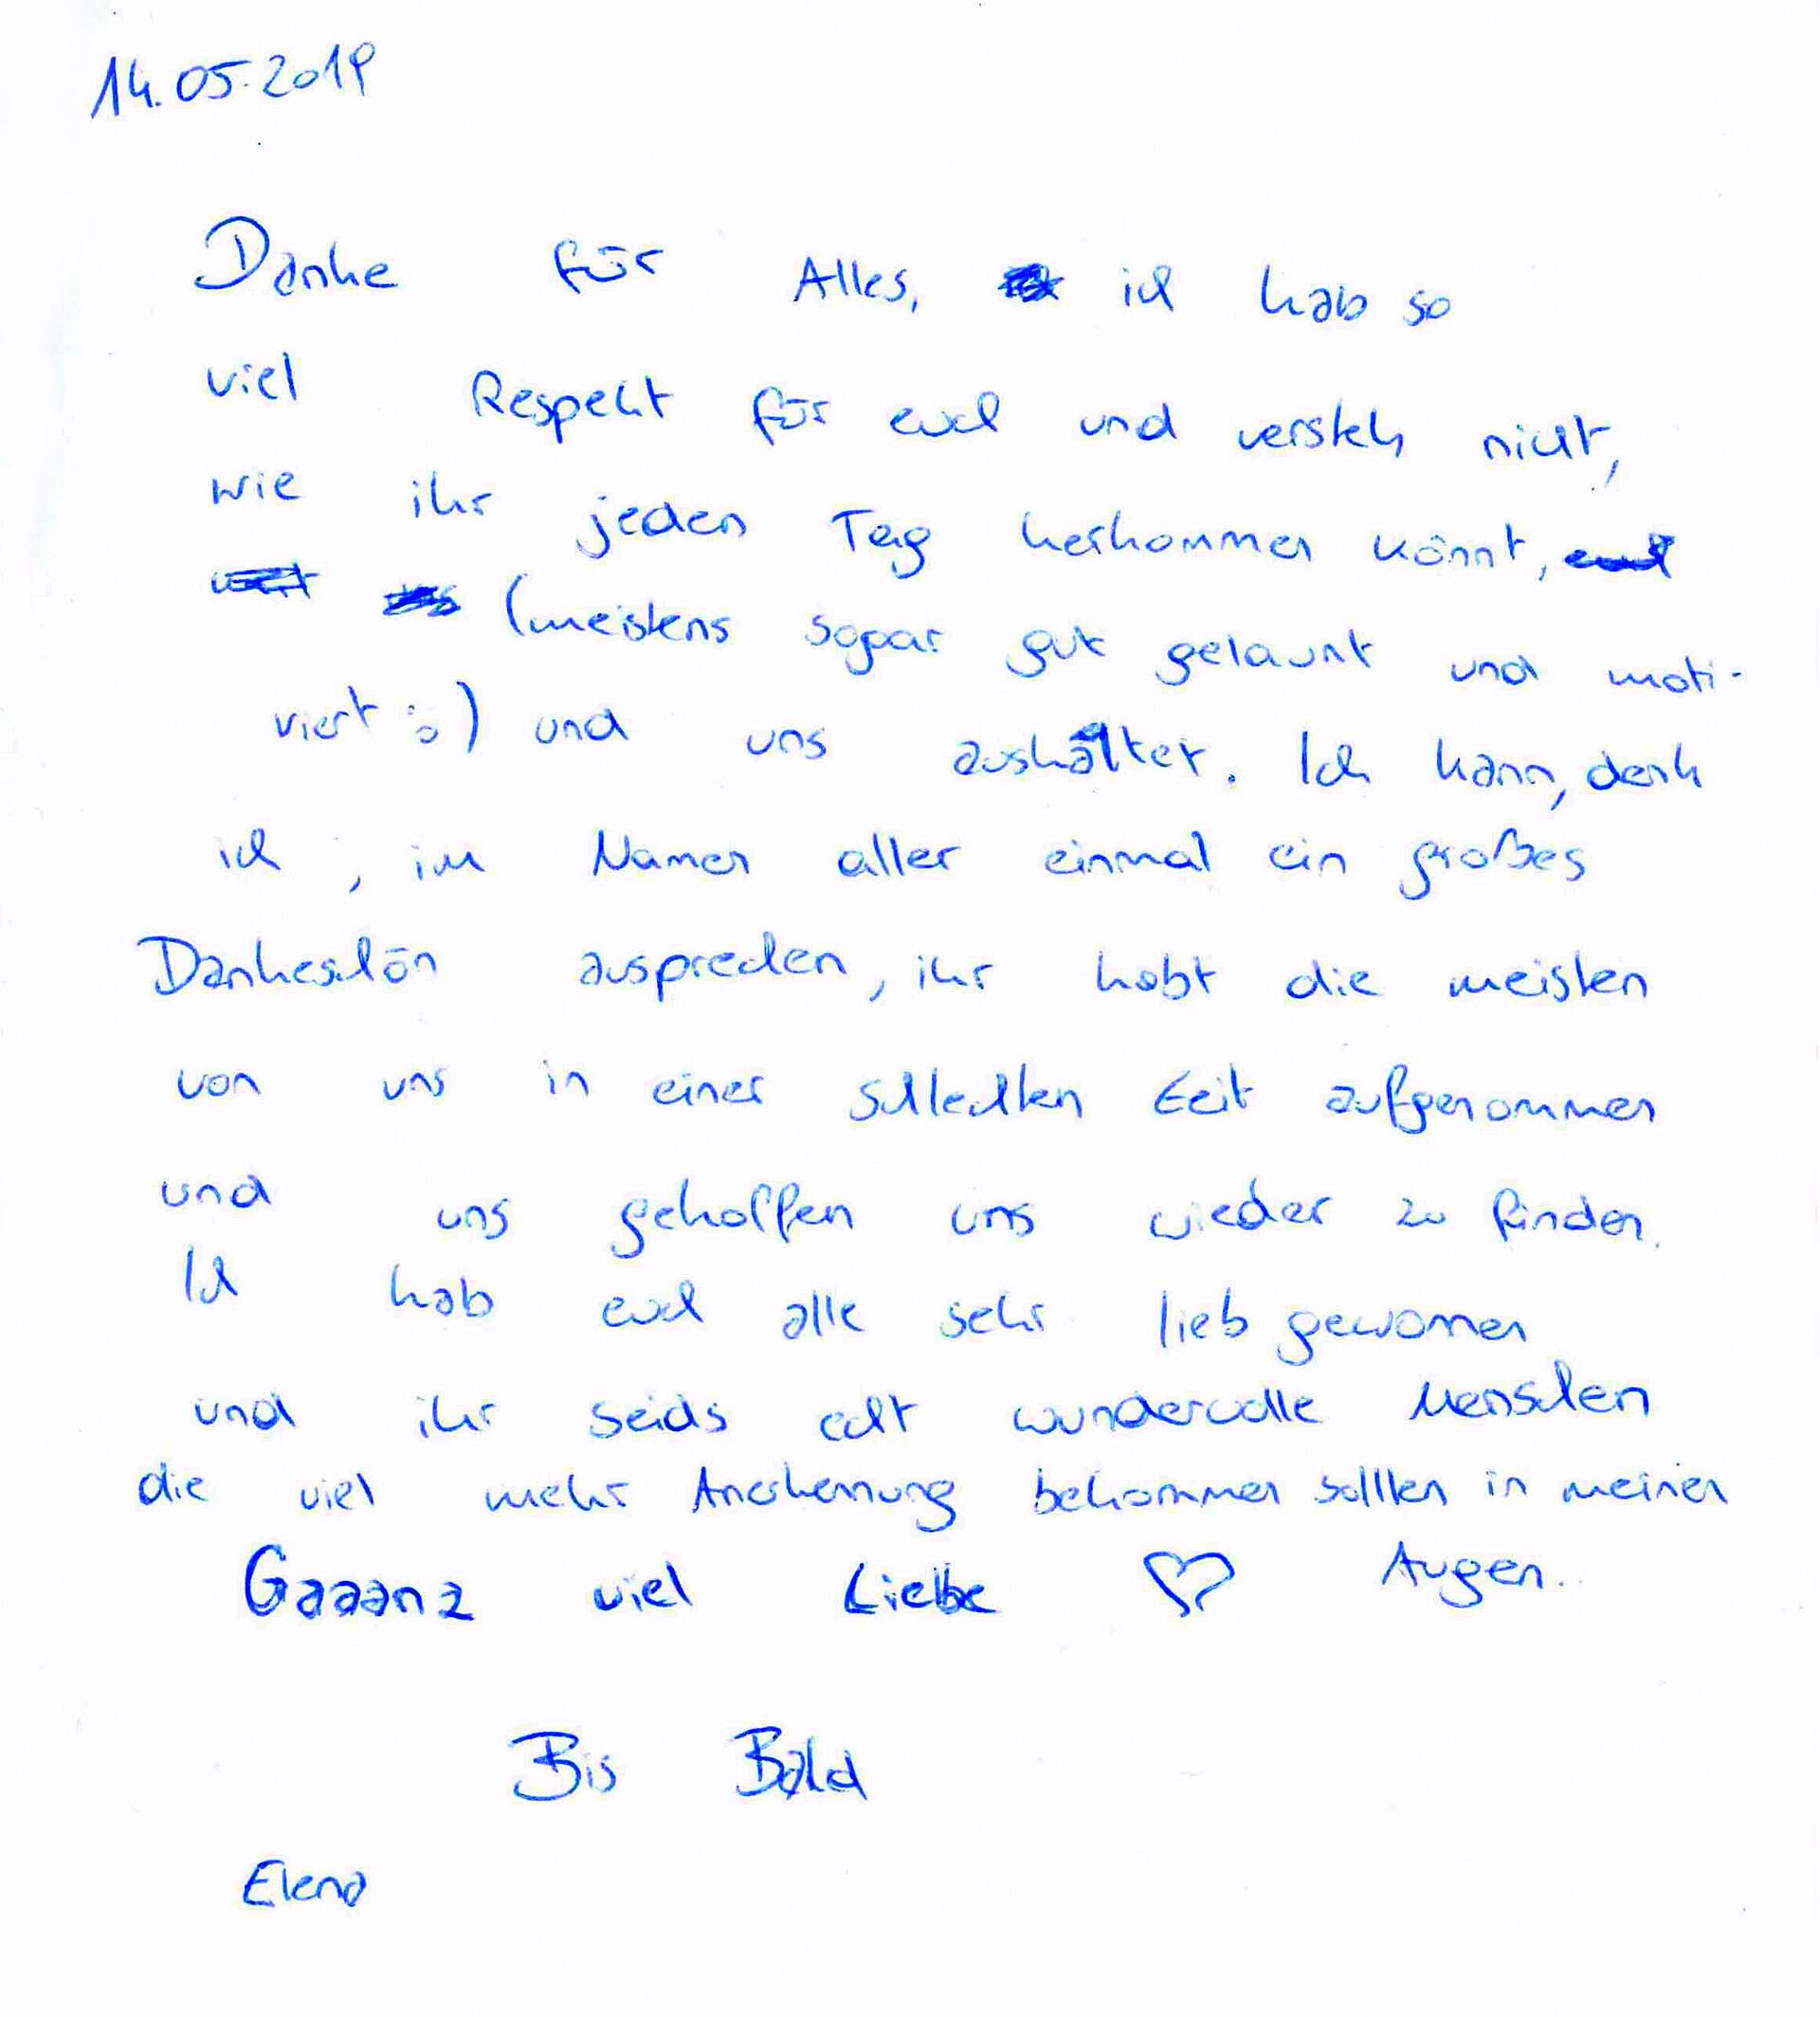 14.05.2019
Danke für Alles, ich hab so
viel Respekt für euch und versteh nicht,
wie ihr jeden Tag herkommen könnt,
(meistens sogar gut gelaunt und moti-
viert :o) und uns aushaltet. Ich kann, denk
ich, im Namen aller einmal ein großes
Dankeschön ausprechen, ihr habt die meisten
von uns in einer schlechten Zeit aufgenommen
und uns geholfen uns wieder zu finden.
Ich hab euch alle sehr lieb gewonnen
und ihr seids echt wundervolle Menschen
die viel mehr Anerkennung bekommen sollten in meinen
Augen.
Gaaanz viel Liebe ♡
Bis Bald
Elena